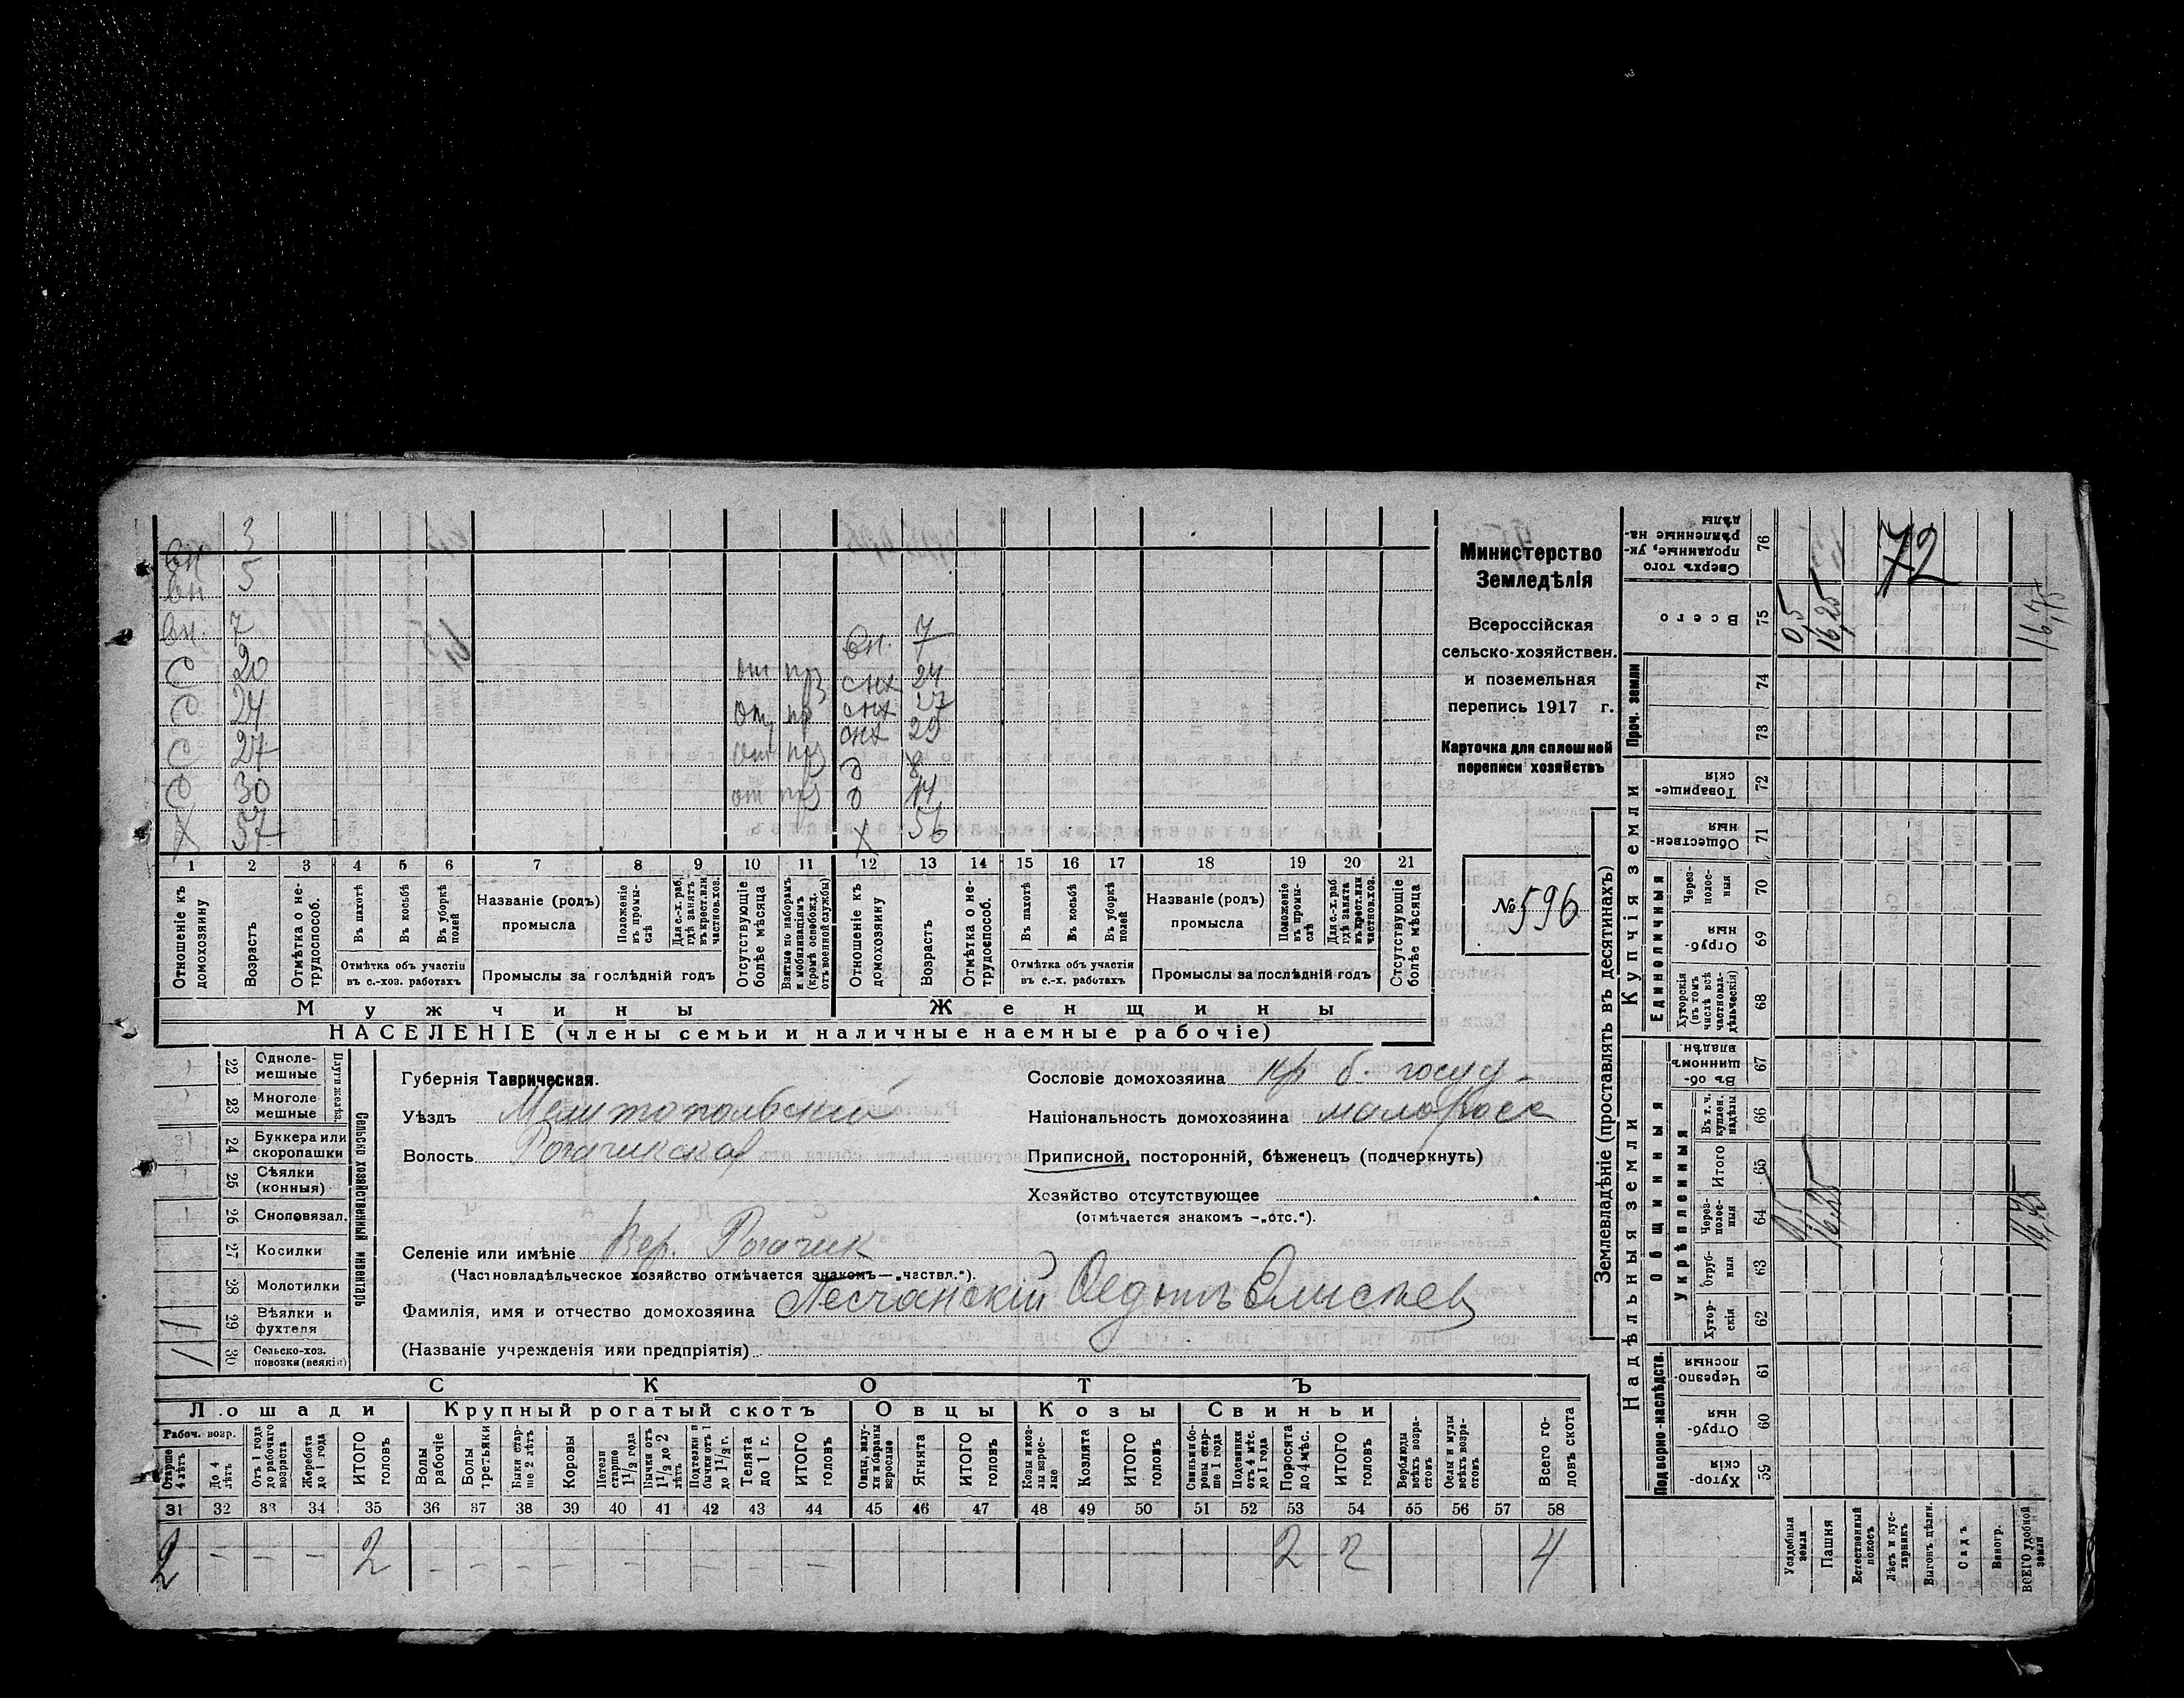 вн 3
вн 5
вн. 7 вн. 7
С 20 от пр снх 24
С 24 от пр снх 27
С 27 от пр снх 29
С 30 от пр д 14
Х 57 Х 56
1 2 3 4 5 6 7 8 9 10 11 12 13 14 15 16 17 18 19 20 21
Отношеніе къ домохозяину
Возрастъ
Отмѣтка о нетрудоспособ.
Въ пахотѣ
Въ косьбѣ
Въ уборкѣ полей
Отмѣтка объ участіи
въ с.-хоз. работахъ
Названіе (родъ)
промысла
Положеніе въ промыслѣ
Для с.-х. раб. гдѣ занятъ въ крест. или частнов. хоз.
Промыслы за послѣдній годъ
Отсутствующіе болѣе мѣсяца
Взятые по наборамъ и мобилизаціямъ (кромѣ освобожд. отъ военной службы)
Отношеніе къ домохозяину
Возрастъ
Отмѣтка о нетрудоспособ.
Въ пахотѣ
Въ косьбѣ
Въ уборкѣ полей
Отмѣтка объ участіи
въ с.-х. работахъ
Названіе (родъ)
промысла
Положеніе въ промыслѣ
Для с.-х. раб. гдѣ занята въ крест. или частнов. хоз.
Промыслы за послѣдній годъ
Отсутствующіе болѣе мѣсяца
Мужчины Женщины
НАСЕЛЕНІЕ (члены семьи и наличные наемные рабочіе)
Министерство
Земледѣлія
Всероссійская
сельско-хозяйствен.
и поземельная
перепись 1917 г.
Карточка для сплошной
переписи хозяйствъ
№ 596
Плуги желѣз.
22 Одноле-
мешные
23 Многоле
мешные
24 Буккера или
скоропашки
25 Сѣялки
(конныя)
26 Сноповязал.
27 Косилки
28 Молотилки
29 Вѣялки и
фухтеля 1
30 Сельско-хоз.
повозки (всякія) 1
Сельско хозяйственный инвентарь
Губернія Таврическая.
Уѣздъ Мелитопольскій
Волость Рогачикская
Селеніе или имѣніе Вер. Рогачик
(Частновладѣльческое хозяйство отмѣчается знакомъ—„частвл.“).
Фамилія, имя и отчество домохозяина Песчанскій Федотъ Елисеев
(Названіе учрежденія или предпріятія)
Сословіе домохозяина кр б. госуд
Національность домохозяина малоросс
Приписной, посторонній, бѣженец (подчеркнуть)
Хозяйство отсутствующее
(отмѣчается знакомъ —„отс.“).
СКОТЪ
Лошади Крупный рогатый скотъ Овцы Козы Свиньи
Рабоч. возр.
Старше 4 лѣтъ
До 4 лѣтъ
Отъ 1 года до рабочаго возраста
Жеребята до 1 года
ИТОГО головъ
Волы рабочіе
Волы третьяки
Быки старше 2 лѣтъ
Коровы
Нетели старше 1½ года
Бычки отъ 1½ до 2 лѣтъ
Подтелки и бычки отъ 1 до 1½ г.
Телята до 1 г.
ИТОГО головъ
Овцы, валухи и бараны взрослые
Ягнята
ИТОГО головъ
Козы и козлы взрослые
Козлята
ИТОГО головъ
Свиньи боровы старше 1 года
Подсвинки отъ 4 мѣс. до 1 года
Поросята до 4 мѣс.
ИТОГО головъ
Верблюды всѣхъ возрастовъ
Ослы и мулы всѣхъ возрастовъ
Всего головъ скота
31 32 33 34 35 36 37 38 39 40 41 42 43 44 45 46 47 48 49 50 51 52 53 54 55 56 57 58
2 – – – 2 – – – – – – – – – – – – 2 2 4
Землевладѣніе (проставлять въ десятинахъ)
Надѣльныя земли
Купчія земли
Проч. земли
Подворно-наслѣдств.
Общинныя
Укрѣпленныя
Единоличныя
Сверхъ того проданные, укрѣпленные надѣлы 76 72
Всего 75 0,5 16,25 16,75
74
73
Товарищескія 72
Общественныя 71
Черезполосныя 70
Отрубныя 69
Хуторскія (въ томъ числѣ всѣ частновладѣльческія) 68
Въ общинномъ владѣн. 67
Въ т. ч. куплен. надѣлы 66
Итого 65
Черезполосныя 64 0,5 16,25 16,75
Отрубныя 63
Хуторскія 62
Черезполосныя 61
Отрубныя 60
Хуторскія 59
Усадебныя земли
Пашня
Естественный покосъ
Лѣсъ и кустарникъ
Выгонъ цѣлин.
Садъ
Виногр.
ВСЕГО удобной земли